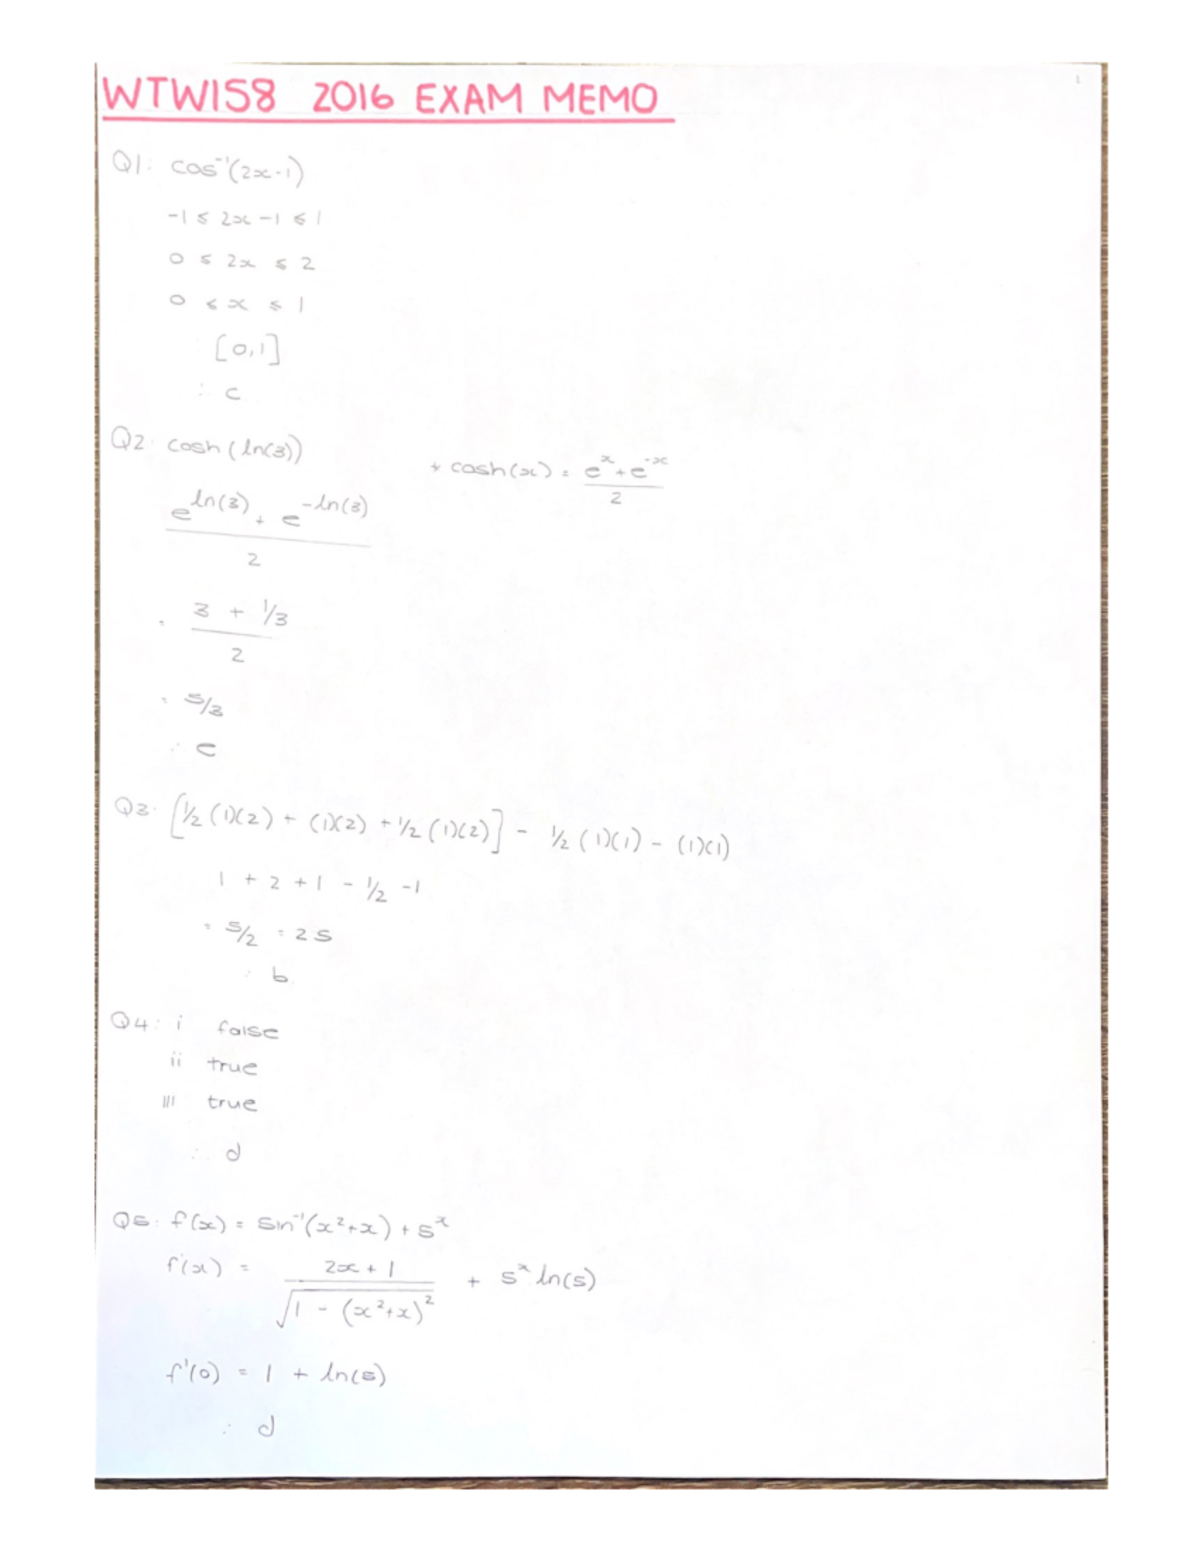 1
WTW158 2016 EXAM MEMO
Q1: cos⁻¹(2x-1)
-1 ≤ 2x -1 ≤ 1
0 ≤ 2x ≤ 2
0 ≤ x ≤ 1
[0,1]
∴ c
Q2: cosh(ln(3))
* cosh(x) = (e^x + e^-x)/2
(e^ln(3) + e^-ln(3))/2
= (3 + 1/3)/2
= 5/3
∴ e
Q3: [½(1)(2) + (1)(2) + ½(1)(2)] - ½(1)(1) - (1)(1)
1 + 2 + 1 - ½ - 1
= 5/2 = 2.5
∴ b
Q4: i false
ii true
iii true
∴ d
Q5: f(x) = sin⁻¹(x²+x) + 5^x
f'(x) = (2x + 1)/√(1 - (x²+x)²) + 5^x ln(5)
f'(0) = 1 + ln(5)
∴ d